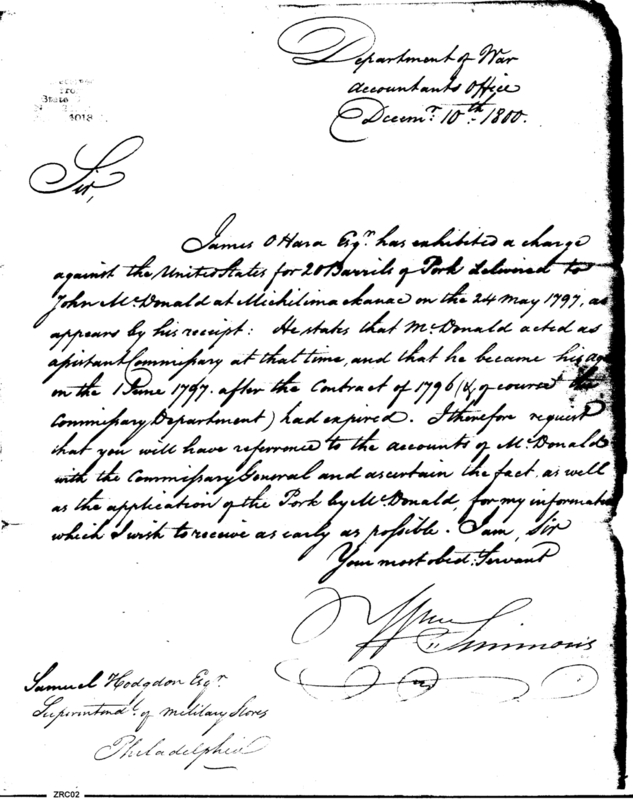 Department of War
Accountants Office
Decemr. 10th. 1800.
State
Sir,
James OHara Esqr. has exhibited a charge
against the United States for 20 Barrils of Pork delivered to
John McDonald at Michilimackanac on the 24 May 1797, as
appears by his receipt: He states that McDonald acted as
assistant Commissary at that time, and that he became his
on the 1 June 1797. after the Contract of 1796 (& of course the
Commissary Department) had expired. I therefore request
that you will have referrence to the accounts of McDonald
with the Commissary General and ascertain the fact as well
as the application of the Pork by McDonald, for my informatio
which I wish to receive as early as possible. I am, Sir
Your most obed: Servant
Wm Simmons
Samuel Hodgdon Esqr.
Superintendt. of Military Stores
Philadelphia
ZRC02